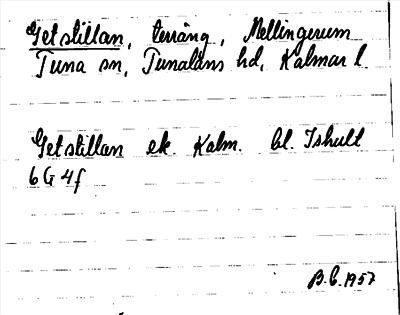 Getstillan, terräng, Mellingerum
Tuna sn, Tunaläns hd, Kalmar l.
Getstillan ek. Kalm. bl. Ishult
6 G 4f
B.C. 1957